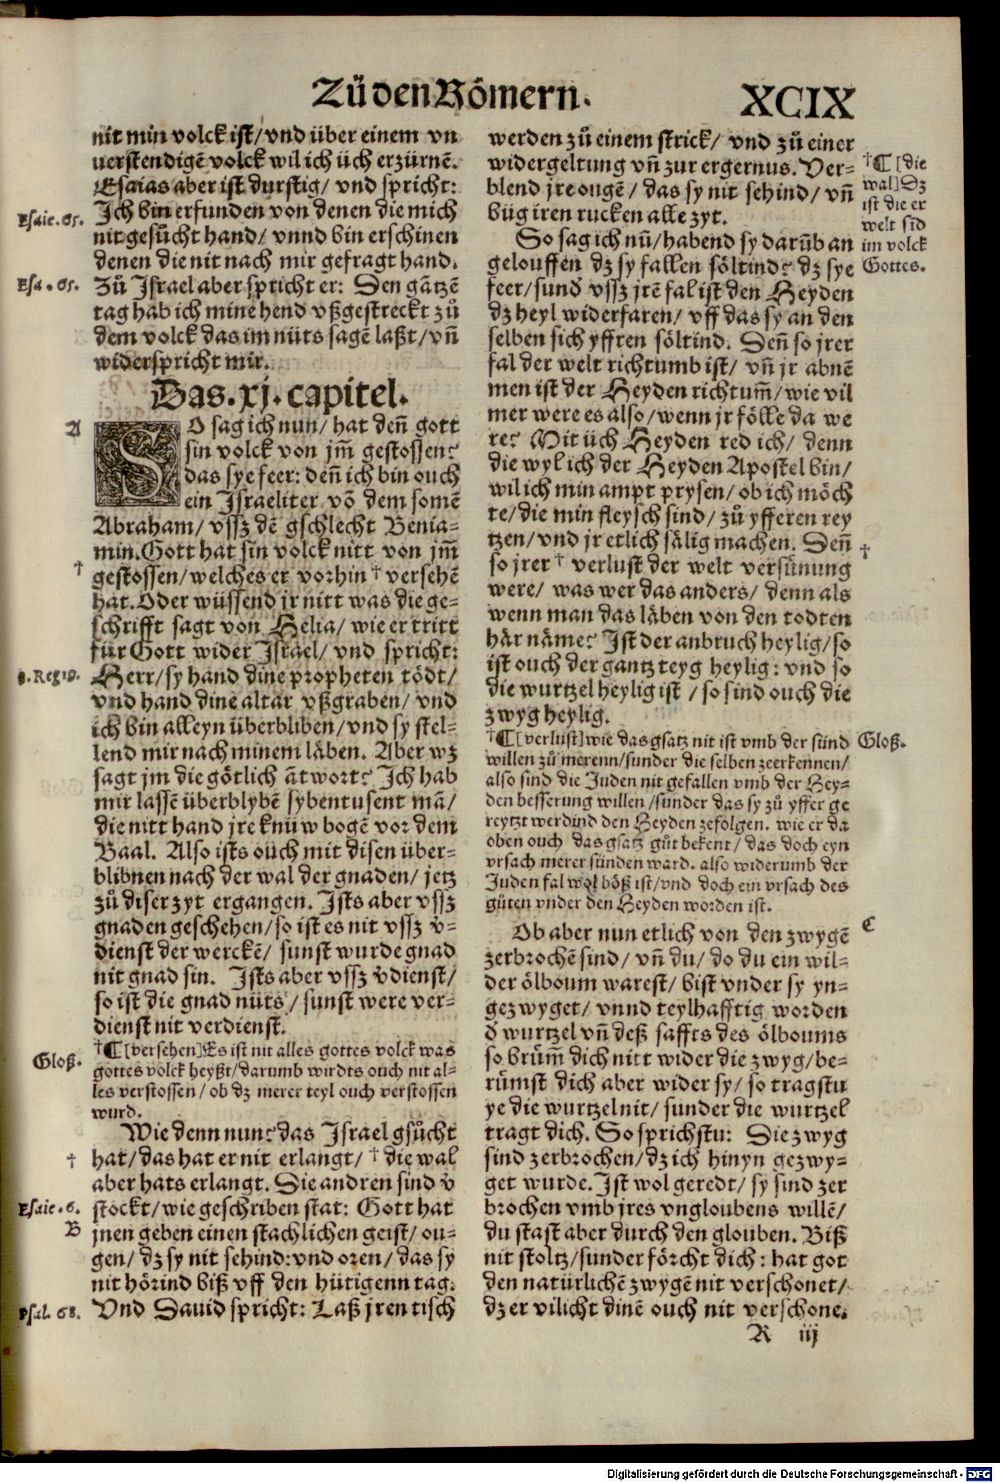 Zů den Römern.
XCIX
nit min volck ist/ vnd über einem vn
uerstendigē volck wil ich üch erzürnē.
Esaias aber ist durstig/ vnd spricht:
Esaie. 65.
Ich bin erfunden von denen die mich
nit gesůcht hand/ vnnd bin erschinen
denen die nit nach mir gefragt hand.
Esa. 65.
Zů Israel aber spricht er: Den gātzē
tag hab ich mine hend vßgestreckt zů
dem volck das im nüts sagē laßt/ vn̄
widerspricht mir.
Das .xj. capitel.
A
SO sag ich nun/ hat den̄ gott
sin volck von jm̄ gestossen?
das sye feer: den̄ ich bin ouch
ein Israeliter vō dem somē
Abraham/ vssz dē gschlecht Benia-
min. Gott hat sin volck nitt von jm̄
†
gestossen/ welches er vorhin † versehē
hat. Oder wüssend jr nitt was die ge-
schrifft sagt von Helia/ wie er tritt
für Gott wider Israel/ vnd spricht:
3. Reg 19.
Herr/ sy hand dine propheten tödt/
vnd hand dine altar vßgraben/ vnd
ich bin alleyn überbliben/ vnd sy stel-
lend mir nach minem läben. Aber wz
sagt jm die götlich ātwort? Ich hab
mir lassē überblybē sybentusent mā/
die nitt hand jre knüw bogē vor dem
Baal. Also ists ouch mit disen über-
blibnen nach der wal der gnaden/ jetz
zů diser zyt ergangen. Ists aber vssz
gnaden geschehen/ so ist es nit vssz v̄-
dienst der werckē/ sunst wurde gnad
nit gnad sin. Ists aber vssz v̄dienst/
so ist die gnad nüts/ sunst were ver-
dienst nit verdienst.
Gloß.
†¶[versehen]Es ist nit alles gottes volck was
gottes volck heyßt/ darumb wirdts ouch nit al-
les verstossen/ ob dz merer teyl ouch verstossen
wurd.
Wie denn nun? das Israel gsůcht
†
hat/ das hat er nit erlangt/ † die wal
aber hats erlangt. Die andren sind v̄
Esaie. 6.
stockt/ wie geschriben stat: Gott hat
B
jnen geben einen stachlichen geist/ ou-
gen/ dz sy nit sehind: vnd oren/ das sy
nit hörind biß vff den hütigenn tag.
Psal. 68.
Vnd Dauid spricht: Laß jren tisch
werden zů einem strick/ vnd zů einer
widergeltung vn̄ zur ergernus. Ver-
blend jre ougē/ das sy nit sehind/ vn̄
büg iren rucken alle zyt.
†¶[die
wal]Dz
ist die er
welt sīd
im volck
Gottes.
So sag ich nů/ habend sy darūb an
gelouffen dz sy fallen söltind? dz sye
feer/ sund vssz jrē fal ist den Heyden
dz heyl widerfaren/ vff das sy an den
selben sich yffren söltind. Den̄ so jrer
fal der welt richtumb ist/ vn̄ jr abnē
men ist der Heyden richtum̄/ wie vil
mer were es also/ wenn jr fölle da we
re? Mit üch Heyden red ich/ denn
die wyl ich der Heyden Apostel bin/
wil ich min ampt prysen/ ob ich möch
te/ die min fleysch sind/ zů yfferen rey
tzen/ vnd jr etlich sälig machen. Den̄
†
so jrer † verlust der welt versünung
were/ was wer das anders/ denn als
wenn man das läben von den todten
här näme? Ist der anbruch heylig/ so
ist ouch der gantz teyg heylig: vnd so
die wurtzel heylig ist/ so sind ouch die
zwyg heylig.
Gloß.
†¶[verlust]wie das gsatz nit ist vmb der sünd
willen zů merenn/ sunder die selben zeerkennen/
also sind die Juden nit gefallen vmb der Hey-
den besserung willen/ sunder das sy zů yffer ge
reytzt werdind den Heyden zefolgen. wie er da
oben ouch das gsatz gůt bekent/ das doch eyn
vrsach merer sünden ward. also widerumb der
Juden fal wol böß ist/ vnd doch ein vrsach des
gůten vnder den Heyden worden ist.
C
Ob aber nun etlich von den zwygē
zerbrochē sind/ vn̄ du/ do du ein wil-
der ölboum warest/ bist vnder sy yn-
gezwyget/ vnnd teylhafftig worden
d̄ wurtzel vn̄ deß saffts des ölboums
so brům̄ dich nitt wider die zwyg/ be-
rümst dich aber wider sy/ so tragstu
ye die wurtzel nit/ sunder die wurtzel
tragt dich. So sprichstu: Die zwyg
sind zerbrochen/ dz ich hinyn gezwy-
get wurde. Ist wol geredt/ sy sind zer
brochen vmb jres vngloubens willē/
du stast aber durch den glouben. Biß
nit stoltz/ sunder förcht dich: hat got
den natürlichē zwygē nit verschonet/
dz er vilicht dinē ouch nit verschone.
R iij
Digitalisierung gefördert durch die Deutsche Forschungsgemeinschaft - DFG